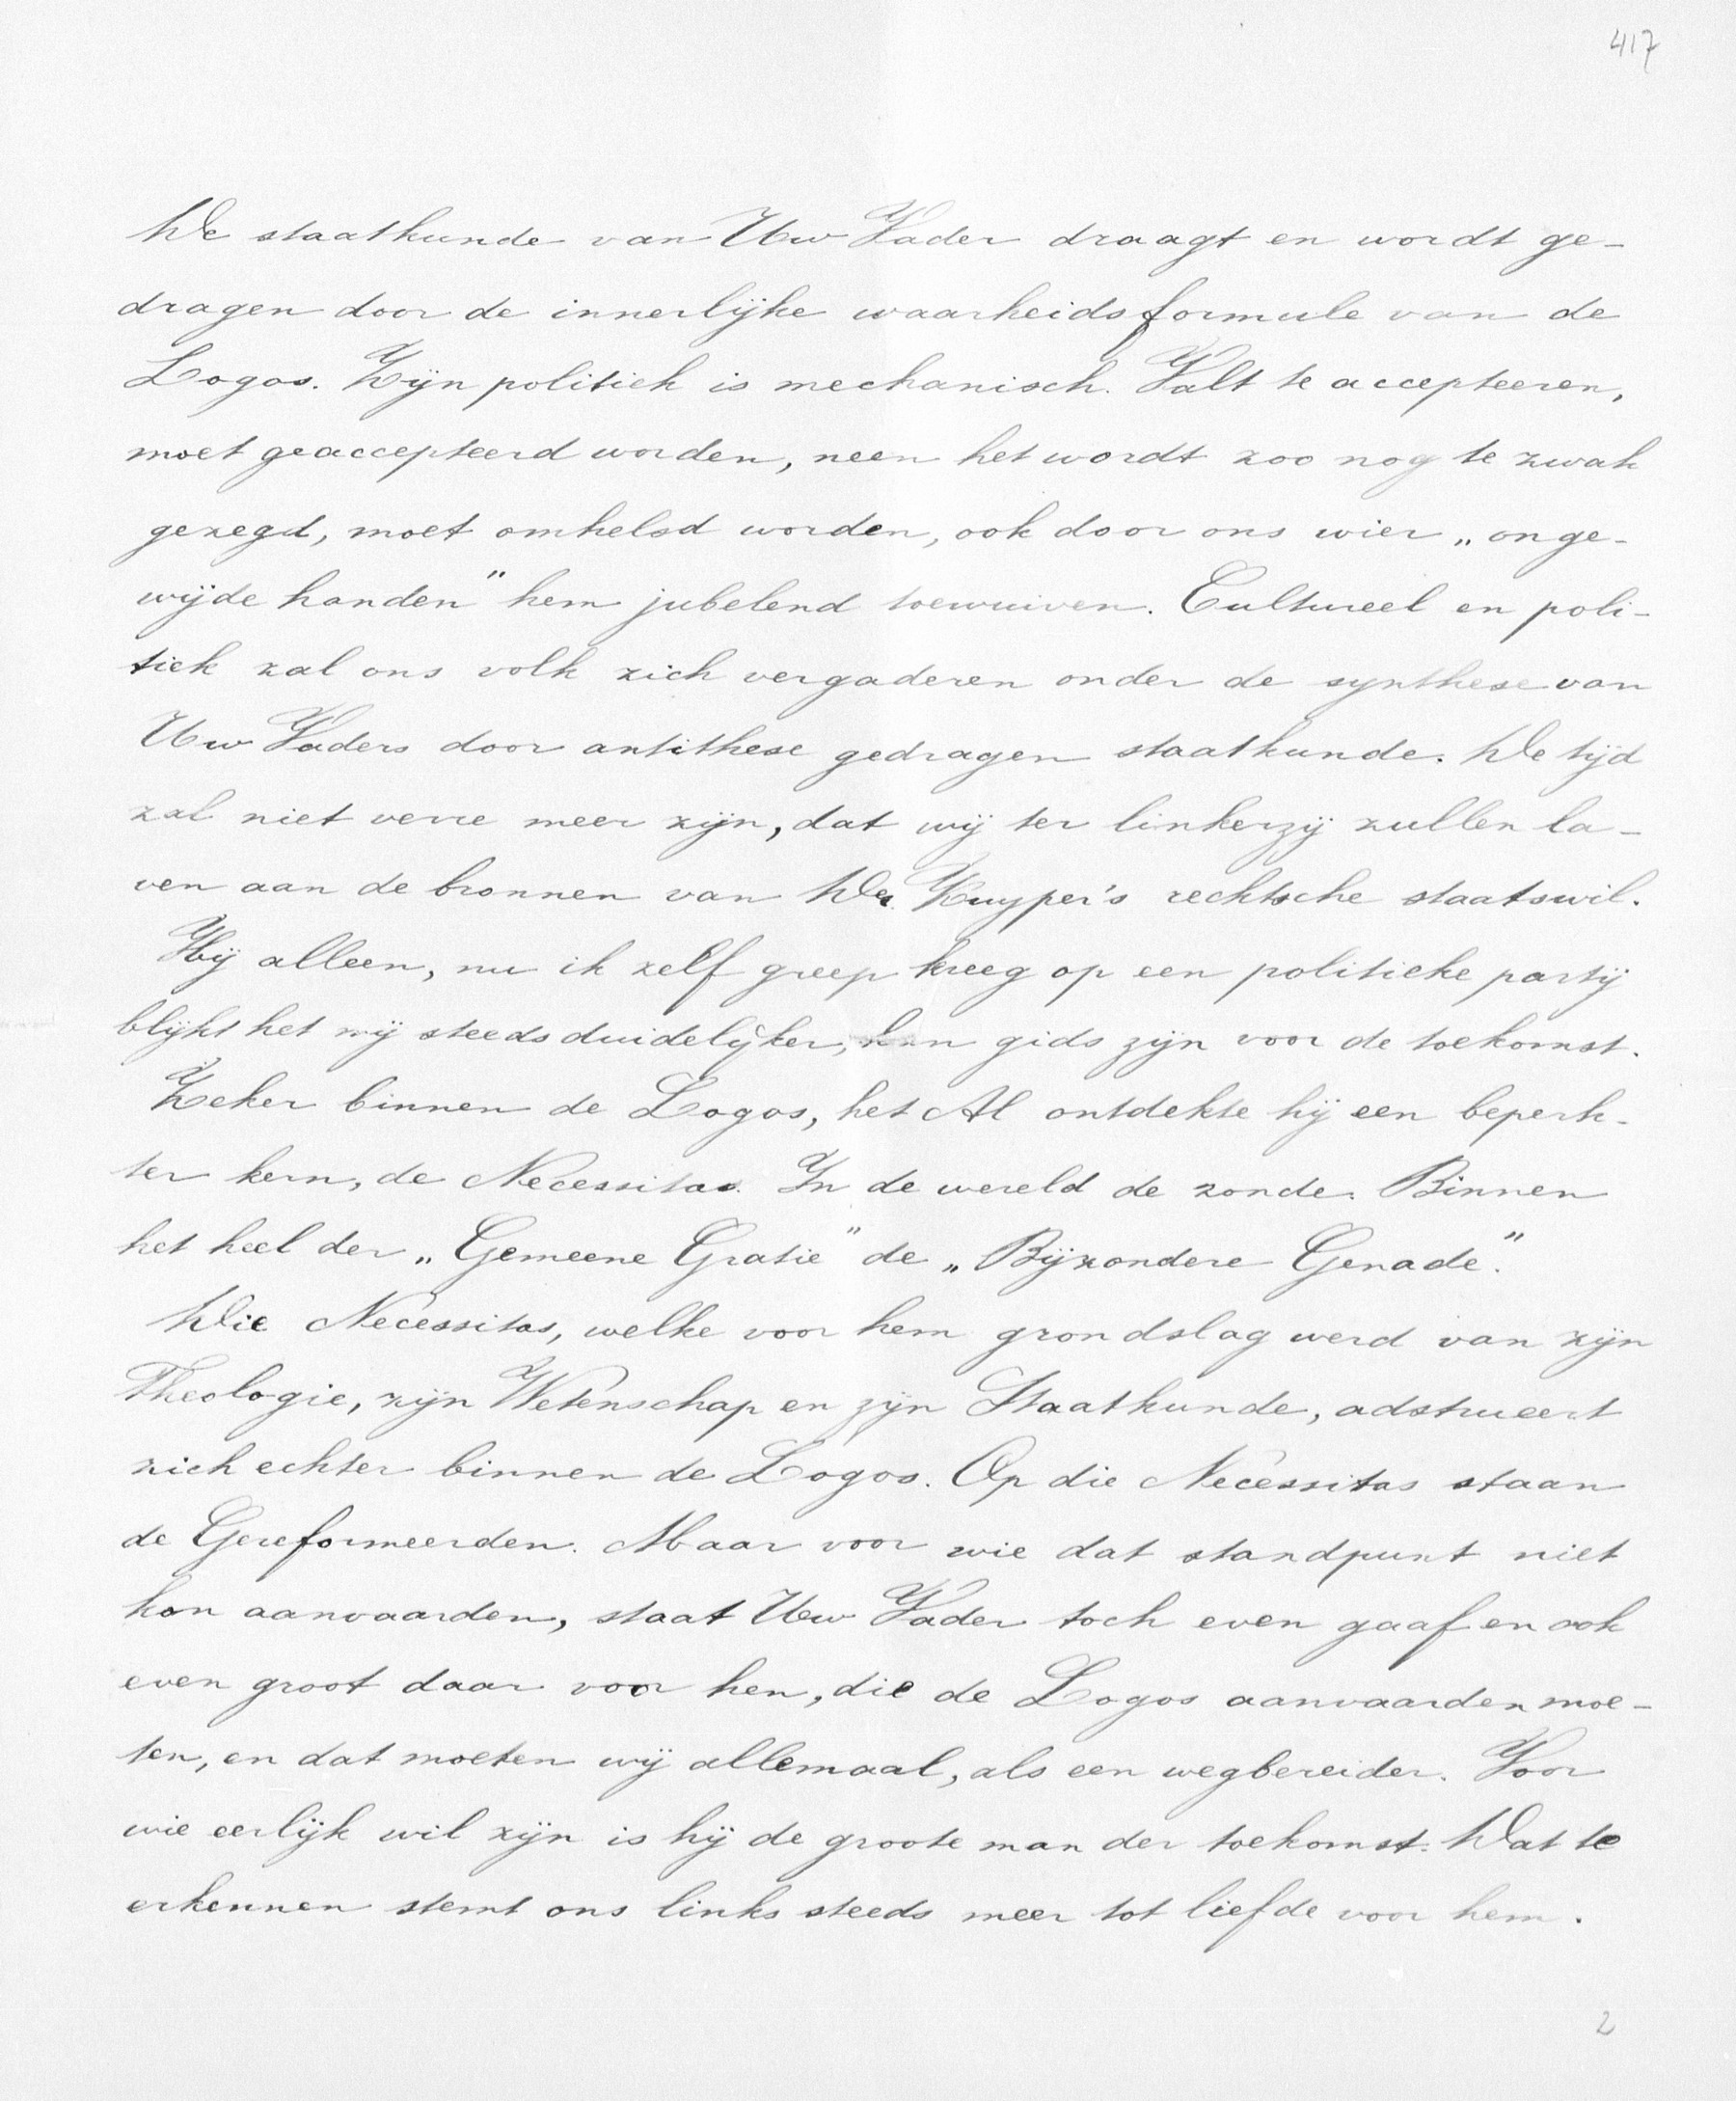 417
De staatkunde van Uw Vader draagt en wordt ge-
dragen door de innerlijke waarheidsformule van de
Logos. Zijn politiek is mechanisch. Valt te accepteeren,
moet geaccepteerd worden, neen het wordt zoo nog te zwak
gezegd, moet omhelsd worden, ook door ons wier „onge-
wijde handen" hem jubelend toewuiven. Cultureel en poli-
tiek zal ons volk zich vergaderen onder de synthese van
Uw Vaders door antithese gedragen staatkunde. De tijd
zal niet verre meer zijn, dat wij ter linkerzij zullen la-
ven aan de bronnen van Dr. Kuyper's rechtsche staatswil.
Hij alleen, nu ik zelf greep kreeg op een politieke partij
blijkt het mij steeds duidelijker, kan gids zijn voor de toekomst.
Zeker binnen de Logos, het Al ontdekte hij een beperk-
ter kern, de Necessitas. In de wereld de zonde. Binnen
het heel der „Gemeene Gratie" de „Bijzondere Genade".
Die Necessitas, welke voor hem grondslag werd van zijn
Theologie, zijn Wetenschap en zijn Staatkunde, adstrueert
zich echter binnen de Logos. Op die Necessitas staan
de Gereformeerden. Maar voor wie dat standpunt niet
kon aanvaarden, staat Uw Vader toch even gaaf en ook
even groot daar voor hen, die de Logos aanvaarden moe-
ten, en dat moeten wij allemaal, als een wegbereider. Voor
wie eerlijk wil zijn is hij de groote man der toekomst. Dat te
erkennen stemt ons links steeds meer tot liefde voor hem.
2